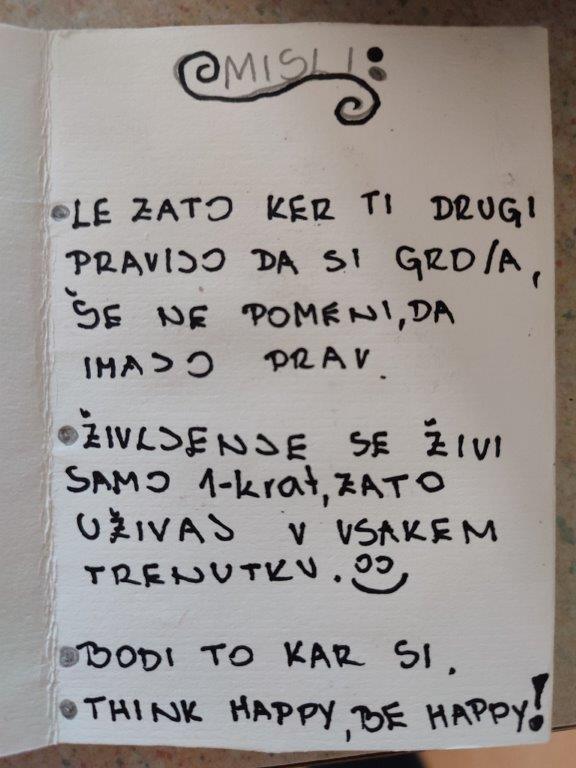 MISLI:
•LE ZATO KER TI DRUGI
PRAVIJO DA SI GRD/A,
ŠE NE POMENI, DA
IMAJO PRAV.
•ŽIVLJENJE SE ŽIVI
SAMO 1-krat, ZATO
UŽIVAJ V VSAKEM
TRENUTKU.
•BODI TO KAR SI.
•THINK HAPPY, BE HAPPY!